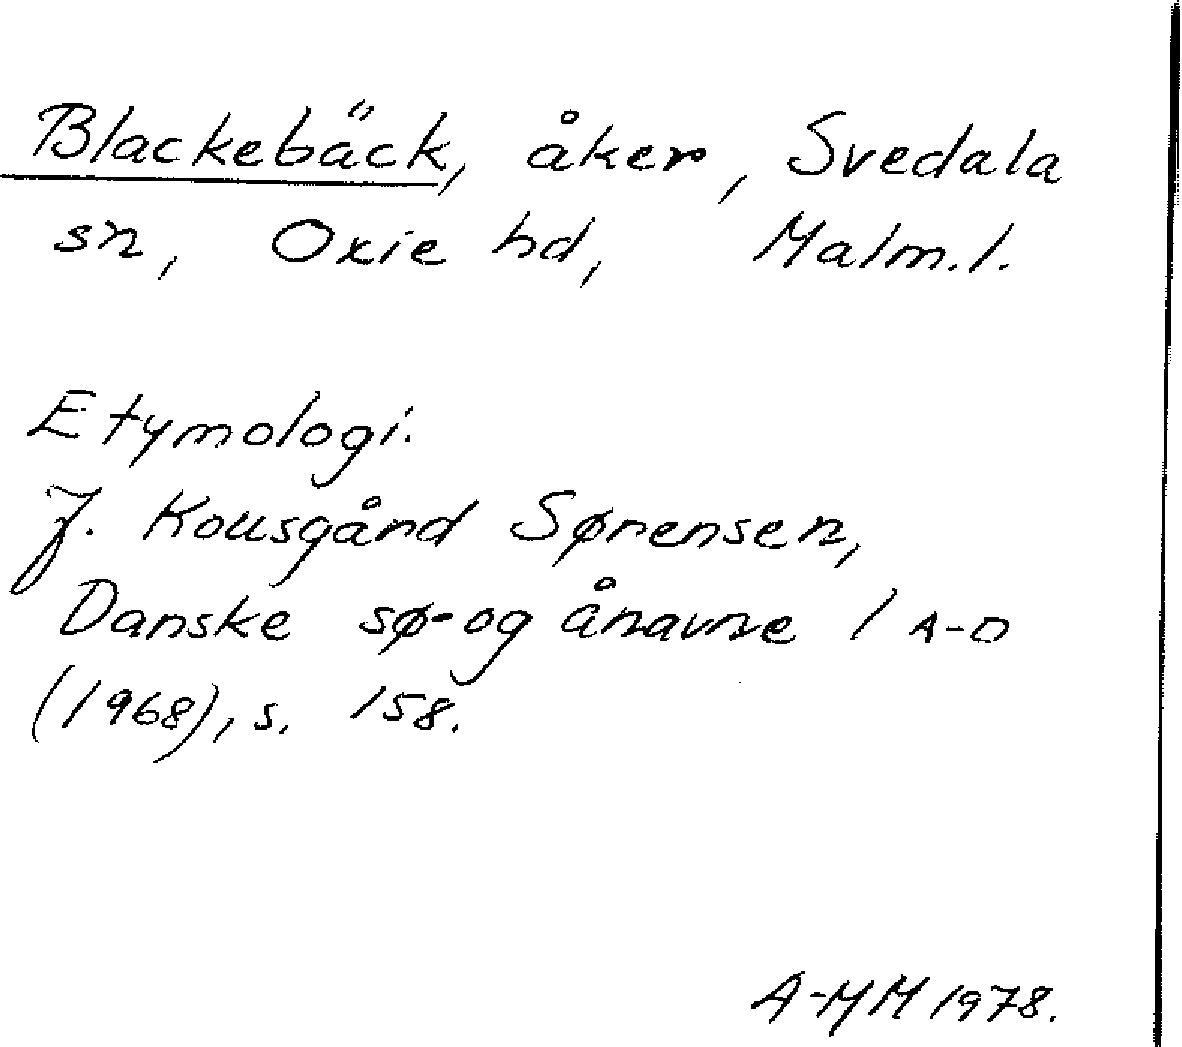 Blackebäck, åker, Svedala
sn, Oxie hd, Malm.l.
Etymologi.
J. Kousgård Sørensen,
Danske sø- og ånavne 1 A-D
(1968), s. 158.
A-MM 1978.